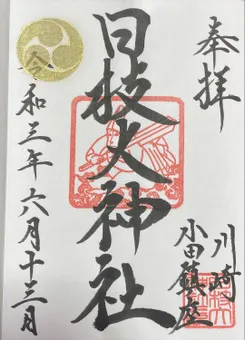 奉拝
川崎
小田鎮座
日枝大神社
令和三年六月十三日